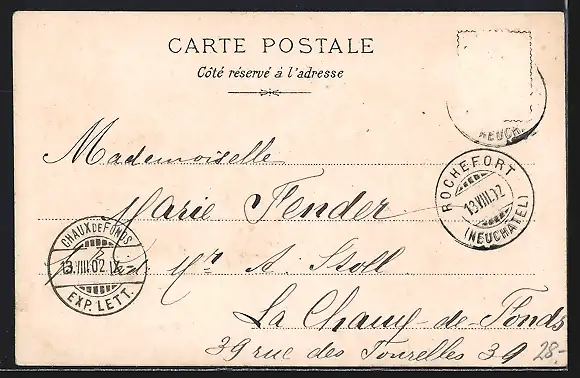 CARTE POSTALE
Côté réservé à l'adresse
NEUCH
Mademoiselle
ROCHEFORT
13.VIII.02
(NEUCHATEL)
Marie Fender
CHAUX DE FONDS
13.VIII.02 IX
EXP. LETT.
Mr A. Stoll
La Chaux-de-Fonds
39 rue des Tourelles 39
28-